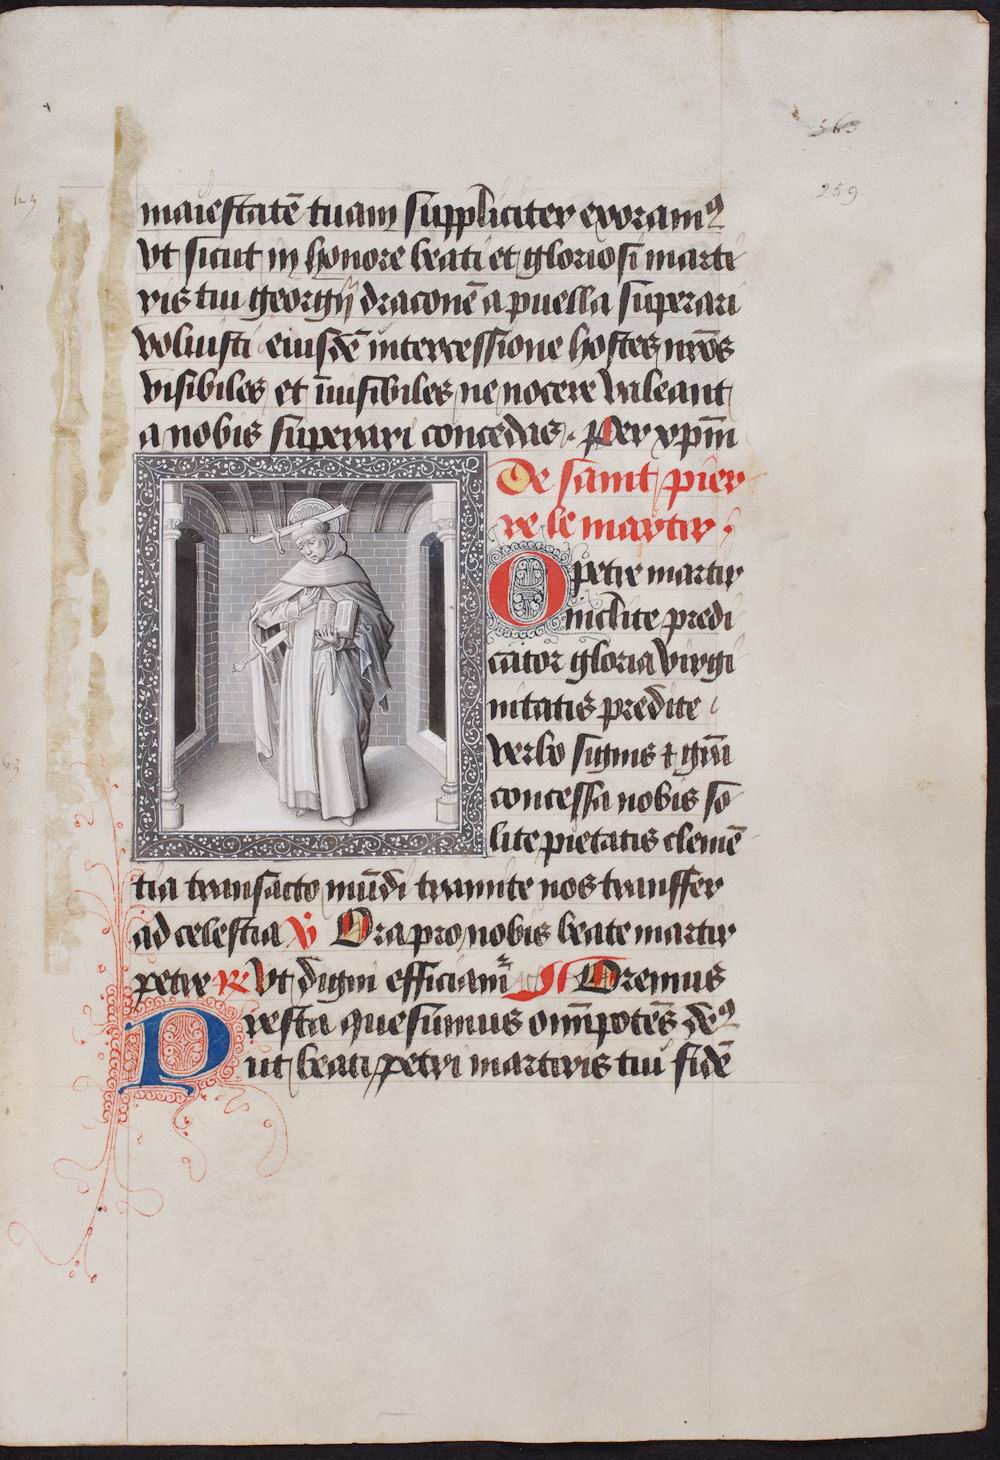 563
259
maiestatē tuam suppliciter exoramꝰ
vt sicut in honore beati et gloriosi marti
ris tui georgij draconē a puella superari
voluisti eiusdē intercessione hostes nrōs
visibiles et īuisibiles ne nocere valeant
a nobis superari concedas. Per xpm̄
De saint pier
re le martir.
O petre martir
inclite predi
cator gloria virgi
nitatis predite
verbo signis ⁊ grā
concessa nobis so
lite pietatis clemē
tia transacto mūdi tramite nos transfer
ad celestia ℣ Ora pro nobis beate martir
petre ℟ Vt digni efficiam̄ Oremus
Presta quesumus omīpotēs deꝰ
ut beati petri martiris tui fidē